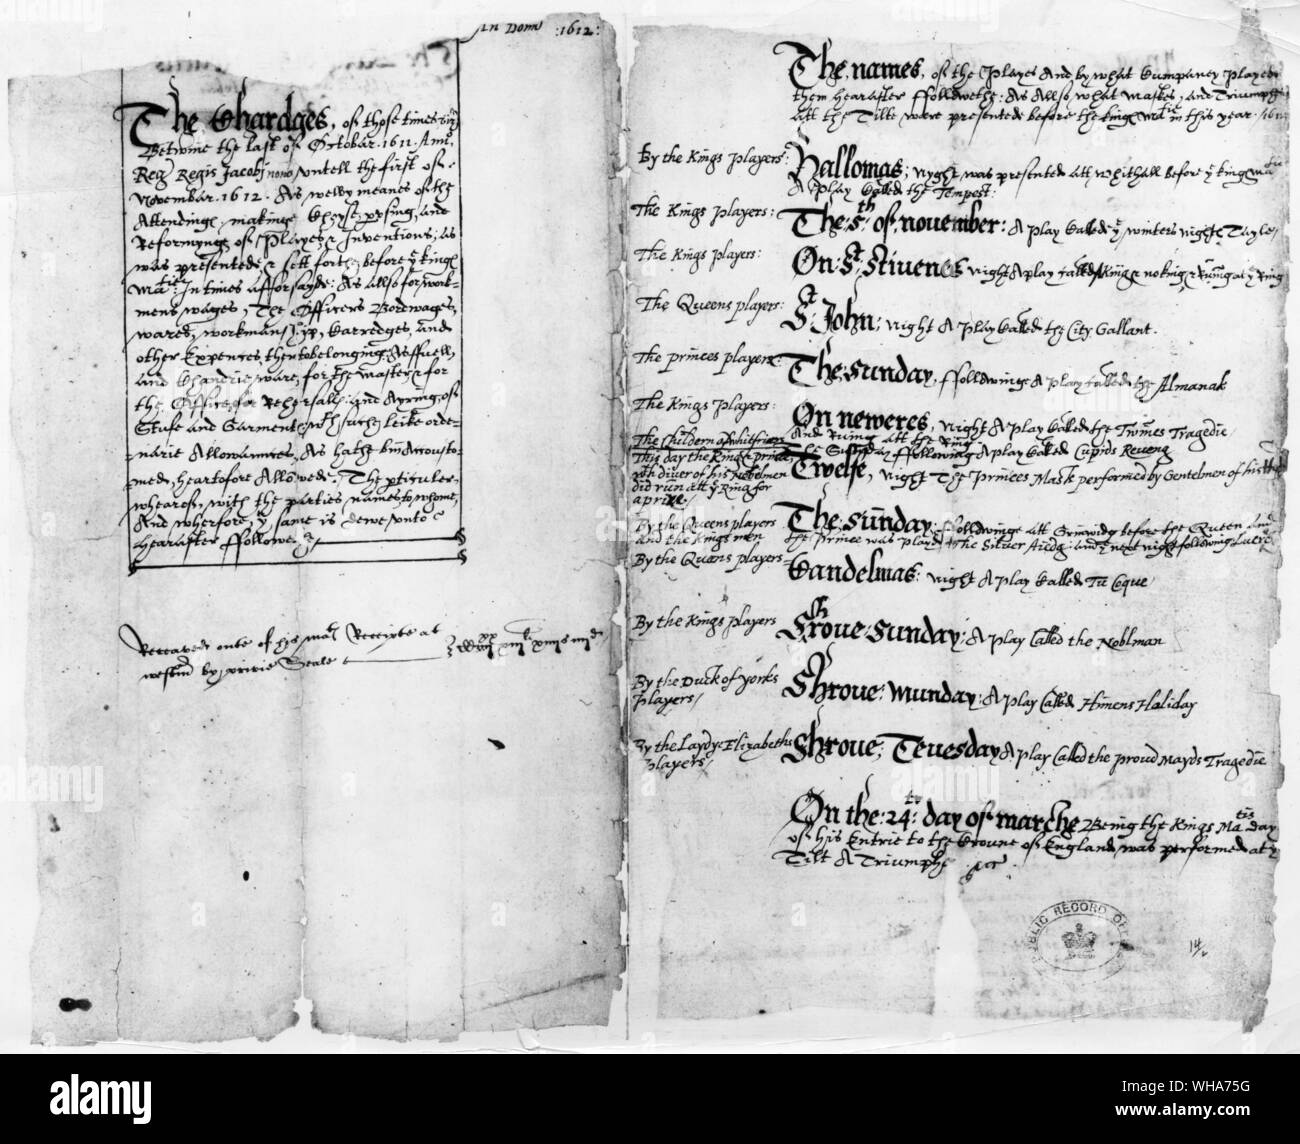 An Domi :1612:
The Chardges, of those times viz
Betwine the last of Octobar .1611. Ano,
Reg Regis Jacobj nono vntell the first of
Novembar .1612. As welby meanes of the
Attendinge makinge Choyse, pvsing, and
Reformynge of Playes & Inventions, as
was presentede & sett forthe before ye kinge
Matie: In times afforsayde: As allso for work-
mens wages, The Officers Bordwages,
wares, workmanship, Carredges, and
other Expences thertobelonging As ffuell,
and Chandrie ware, for the masters & for
the Office, for Rehersalls and Ayring, of
Stufe and Garments wth such leike orde-
narie Allowannces, As hathe binn accousto-
med heartofore Allowed. The pticulers
whearof, with the parties names to whome,
And wherfore, ye same is dewe vnto
hearafter ffollowe
Receaved oute of his matis Receipte at
westmi by privie Seale
The names, of the Playes And by what Cumpaney Played
them hearafter ffollowethe: As Allso what Maskes, and Triumphes
att the Tilte were presentede before the kinges Matie in this year .1612
By the Kings Players: Hallomas; nyght was presented att Whithall before ye kinges Matie
A play Called the Tempest:
The Kings Players: The:5th of november: A play Called ye winters nightes Tayle:
The Kings Players: On: St Stiuenes night A play called A King & no king & Runing at ye Ring
The Queens players: St John: night A play Called the City Gallant.
The princes players: The:Sunday ffollowinge A play called the Almanak
The Kings Players: On neweres, night A play Called the Twines Tragedie
And Runing att the Ring
The Children of whitfriars The Sunday ffollowing A play Called Cupids Reveng
This day the King & prince, Twelfe, night The princes Mask performed by Gentelmen of his
wth diver of his Noblemen
did run att ye Ring for
a prize
By the Queens players The:Sunday: ffollowinge att Grinwidg before the Queen and
and the Kings men the Prince was playd the Silver Aiedg: and ye next night following Lucre
By the Queens players Candelmas: night A play Called Tu Coque
By the Kings Players Shroue:Sunday: A play Called the Noblman
By the Duck of Yorks Shroue: Munday: A play Called Himens Haliday
Players/
By the Laydy: Elizabeths Shroue; Teuesday A play Called the proud Mayds Tragedie
Players
On the:24: day of marche Being the Kings Maties day
of his Entrie to the Croune of England was performed at ye
Tilt A Triumphe
PUBLIC RECORD OFFICE
14
alamy
Image ID: WHA75G
www.alamy.com